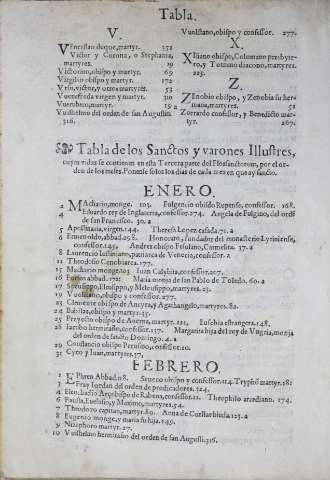 Tabla.
V.
Venceslao duque, martyr. 252
Victor y Corona, o Stephania, martyres. 19
Victorino, obispo y martyr. 69
Virgilio obispo y martyr. 172
Vrso, victor, y otros martyres. 53
Vuenefreda virgen y martyr. 310
martyr. 19.a
Vuilhelmo del orden de san Augustin.
316.
Vunilstano, obispo y confessor. 277.
X.
Xiliano obispo, Colomano presbyte-
ro, y Totnano diacono, martyres.
223.
Z.
Zenobio obispo, y Zenobia su her
mana, martyres. 52
Zorrardo confessor, y Benedicto mar-
tyr. 267.
Tabla de los Sanctos y varones Illustres,
cuyas vidas se contienen en esta Tercera parte del Flossanctorum, por el or-
den de los meses. Ponense solos los dias de cada mes en que ay sancto.
ENERO.
2 Machario, monge. 105. Fulgencio obispo Rupense, confessor. 168.
4 Eduardo rey de Inglaterra, confessor. 274. Angela de Fulgino, del ordē
de san Francisco. 30.a
5 Aposinaria, virgen. 144. Theresa Lopez casada. 71.a
6 abbad. 298. Honorato, fundador del monasterio Lyrinense,
confessor. 145. Andres obispo Fesulano, Carmelita. 37.a
8 Laurencio Iustiniano, patriarca de Venecia, confessor. 2
11 Theodosio Cenobiarca. 177.
15 Machario monge. 105 Iuan Calybita, confessor. 207.
16 Furseo abbad. 121. Maria monja de san Pablo de Toledo. 60.a
17 Speusippo, Eleusippo, y Meleusippo, martyres. 23.
19 Vulstano, obispo y confessor. 277.
23 Clemente obispo de Ancyra, y Agathangelo, martyres. 89.
24 Babilas, obispo y martyr. 35.
25 Preyecto obispo de Auerna, martyr. 225. Eusebia estrangera. 148.
28 Iacobo hermitaño, confessor. 137. Margarita hija del rey de Vngria, monja
del orden de sancto Domingo. 4.a
29 Constancio obispo Perusino, confessor. 20.
31 Cyro y Iuan, martyres. 37.
FEBRERO.
1 Ephren Abbad. 118. Seuero obispo y confessor. 114. Tryphō martyr. 28:
3 Fray Iordan del orden de predicadores. 324.
4 Eleuchadio Arçobispo de Rabena, confessor. 21. Theophilo arcediano. 174.
6 Fausta, Euelasio, y Maximo, martyres. 54.
7 Theodoro capitan, martyr. 89. Anna de Cuellar biuda. 123.a
8 Eugenio monge, y maria su hija. 149.
9 Nizaphoro martyr. 27.
10 Vuilhelmo hermitaño del orden de san Augustī. 316.